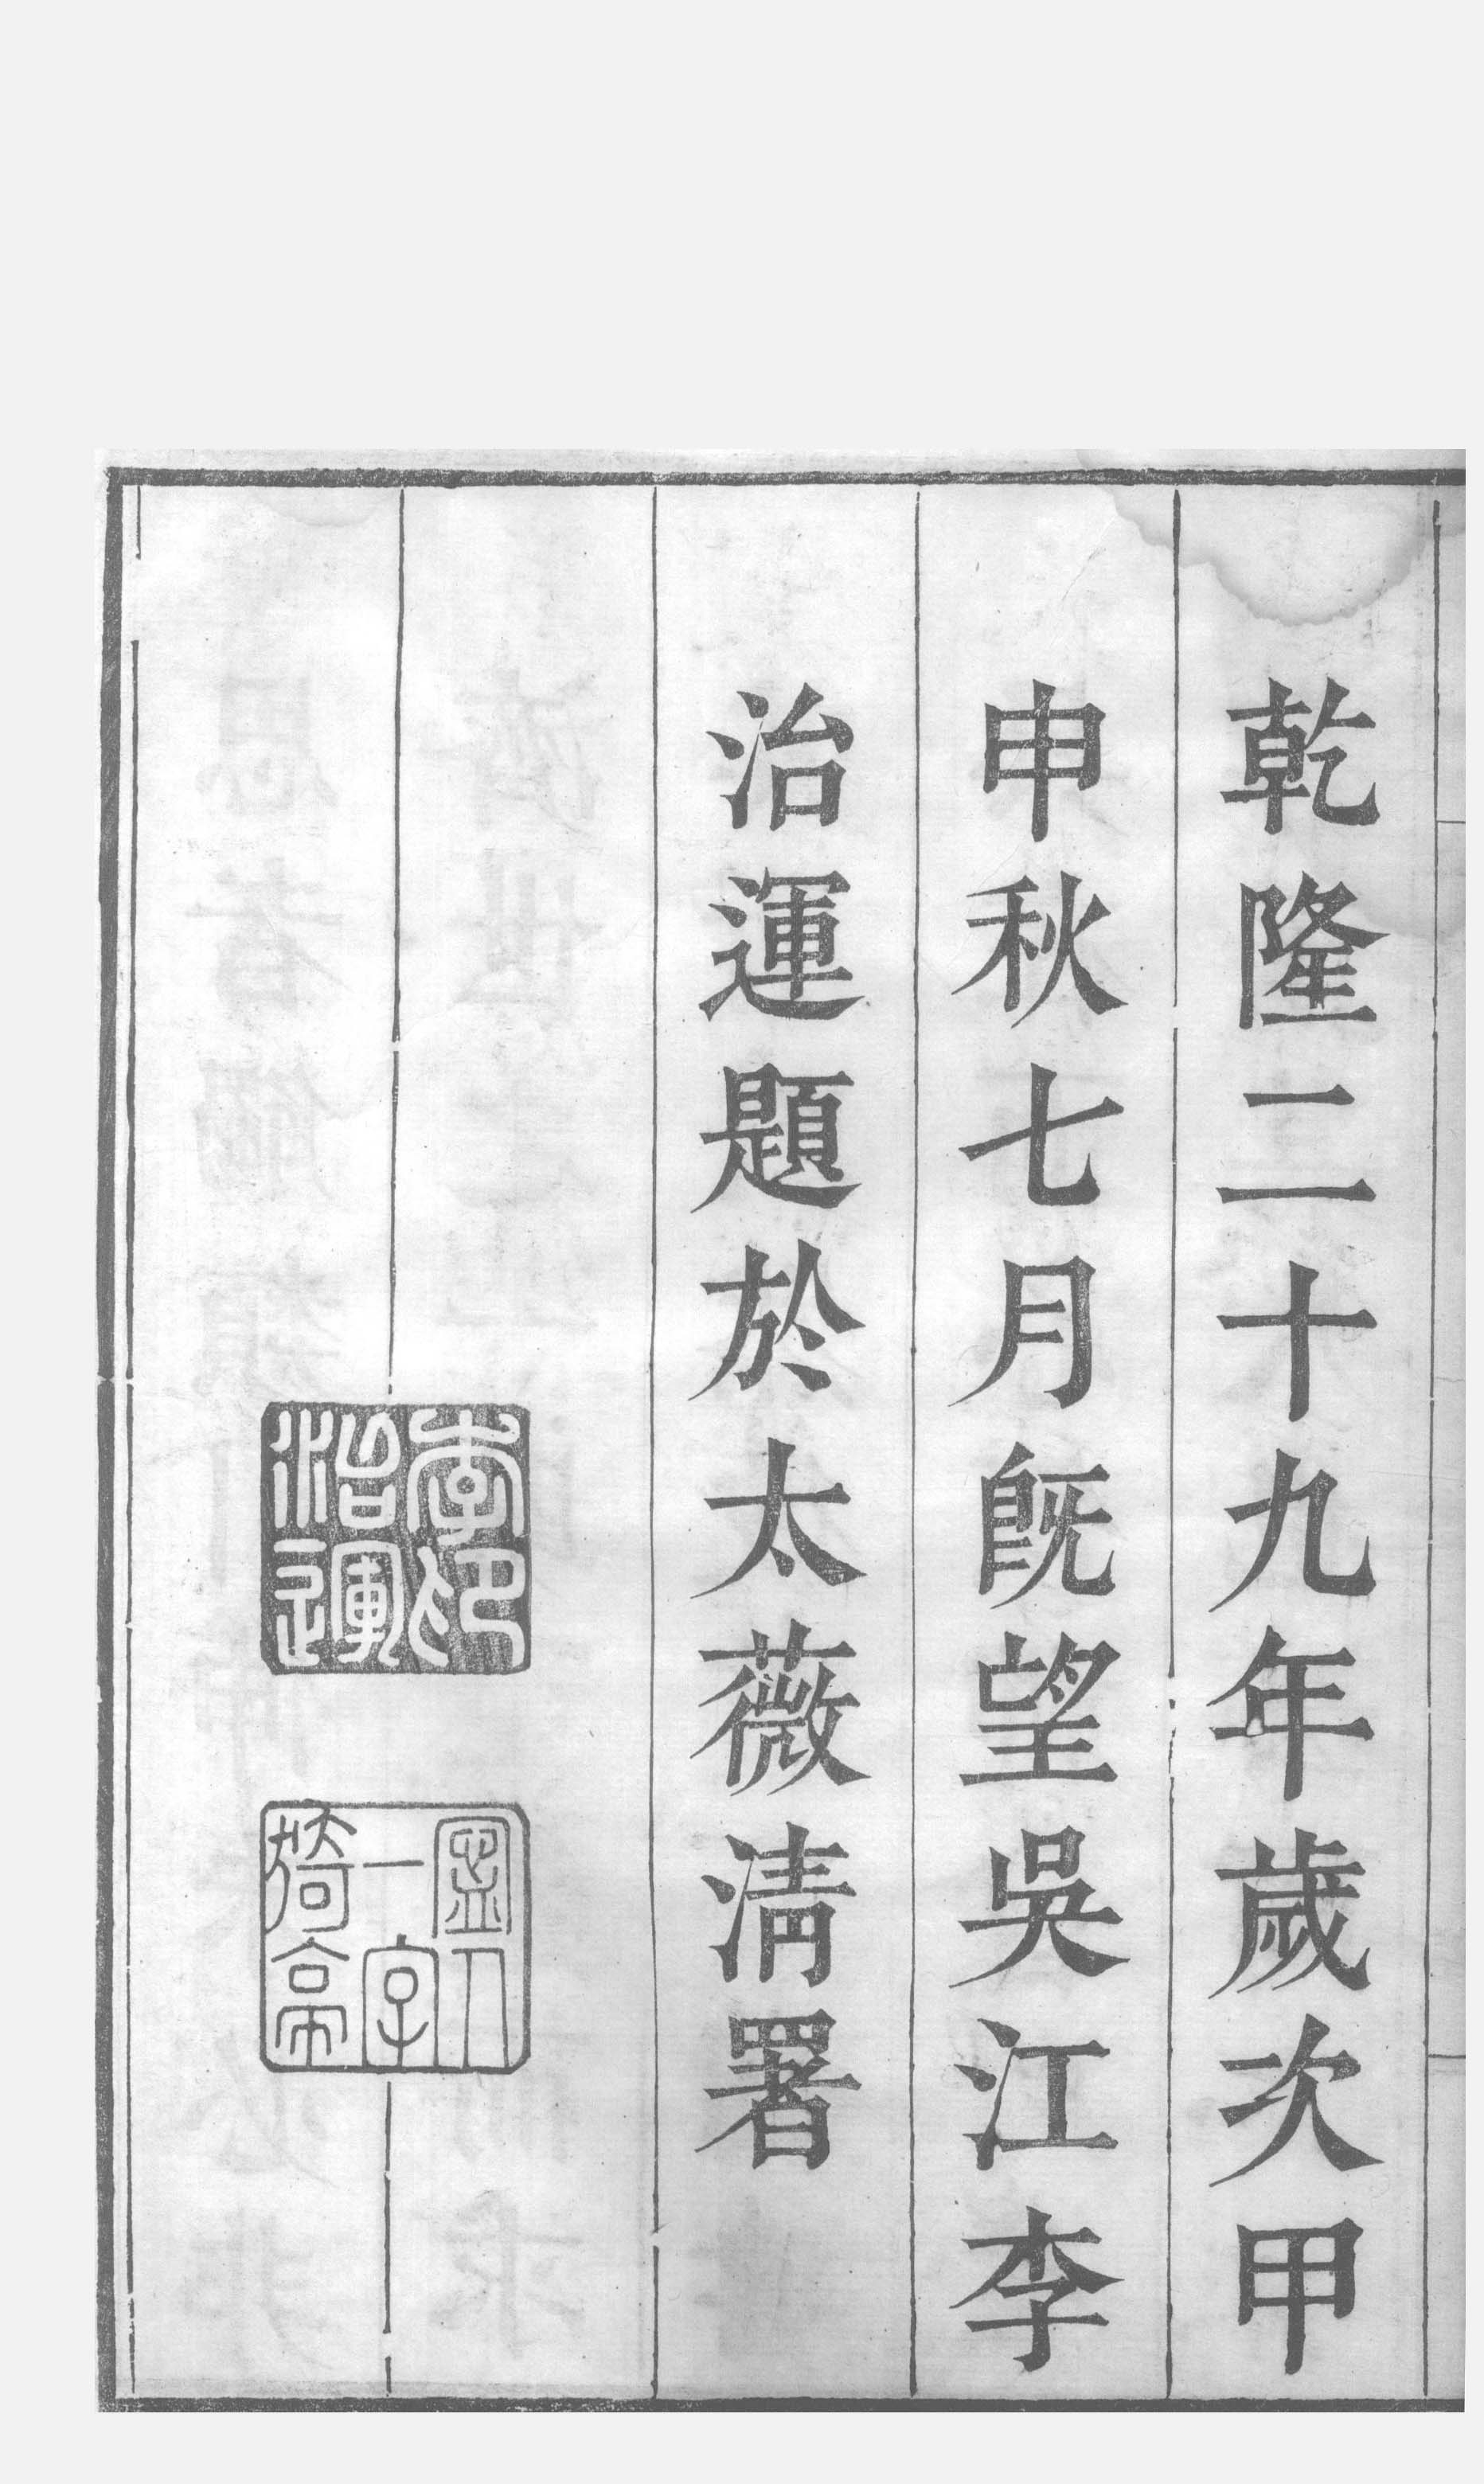 乾隆二十九年歲次甲
申秋七月既望吳江李
治運題於太薇清署
李印治運
寧人一字漪亭